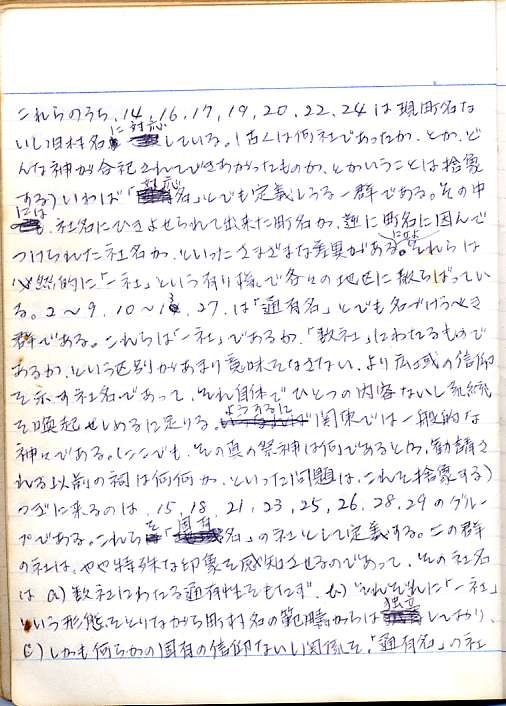 これらのうち、14、16、17、19、20、22、24は現町名な
いし旧村名に対応している。(古くは何社であったか、とか、ど
んな神が合祀されてできあがったものか、とかいうことは捨象
する)いわば「対応名」とでも定義しうる一群である。その中
には、社名にひきよせられて出来た町名か、逆に町名に因んで
つけられた社名か、といったさまざまな差異がある。それらは
必然的に「一社」という有り様で各々の地区に散らばってい
る。2〜9、10〜13、27、は「通有名」とでも名づけうべき
群である。これらは「一社」であるか、「数社」にわたるもので
あるか、という区別があまり意味をなさない、より広域の信仰
を示す社名であって、それ自体でひとつの内容ないし系統
を喚起せしめるに足りる。ようするに関東では一般的な
神々である。(ここでも、その真の祭神は何であるとか、勧請さ
れる以前の祠は何何か、といった問題は、これを捨象する)
つぎに来るのは、15、18、21、23、25、26、28、29のグルー
プである。これらを「固有名」の社として定義する。この群
の社は、やや特殊な印象を感知させるのであって、その社名
は a)数社にわたる通有性をもたず、b)それぞれに「一社」
という形態をとりながら町村名の範疇からは独立しており、
c)しかも何らかの固有の信仰ないし関係を、「通有名」の社